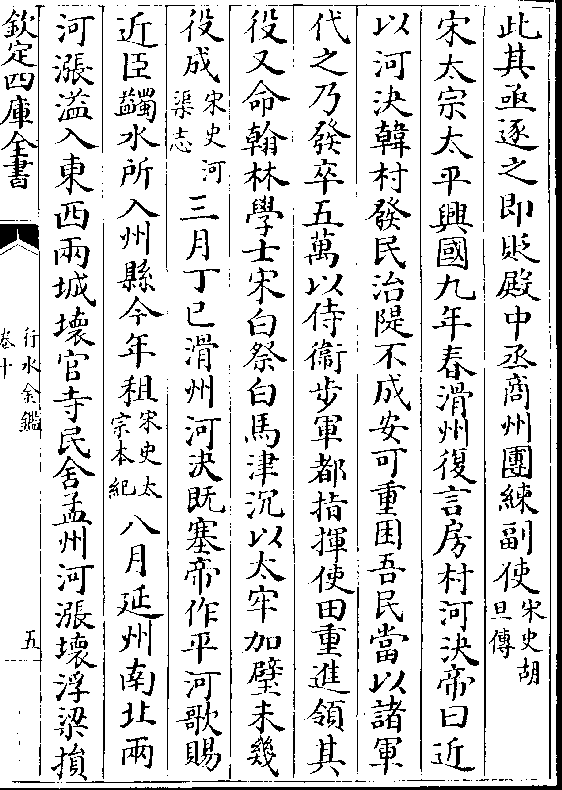 此其亟逐之即貶殿中丞商州團練副使宋史胡旦傳
宋太宗太平興國九年春滑州復言房村河決帝曰近
以河決韓村發民治隄不成安可重困吾民當以諸軍
代之乃發卒五萬以侍衞步軍都指揮使田重進領其
役又命翰林學士宋白祭白馬津沉以太牢加璧未幾
役成宋史河渠志三月丁巳滑州河決既塞帝作平河歌賜
近臣蠲水所入州縣今年租宋史太宗本紀八月延州南北兩
河漲溢入東西兩城壞官寺民舍孟州河漲壞浮梁損
欽定四庫全書
行水金鑑
卷十
五